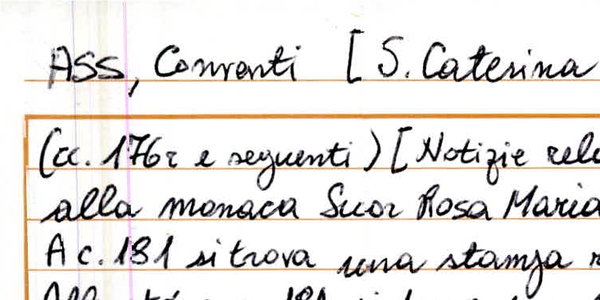 ASS, Conventi [S. Caterina
(cc. 176r e seguenti) [Notizie rela
alla monaca Suor Rosa Maria
A c. 181 si trova una stampa